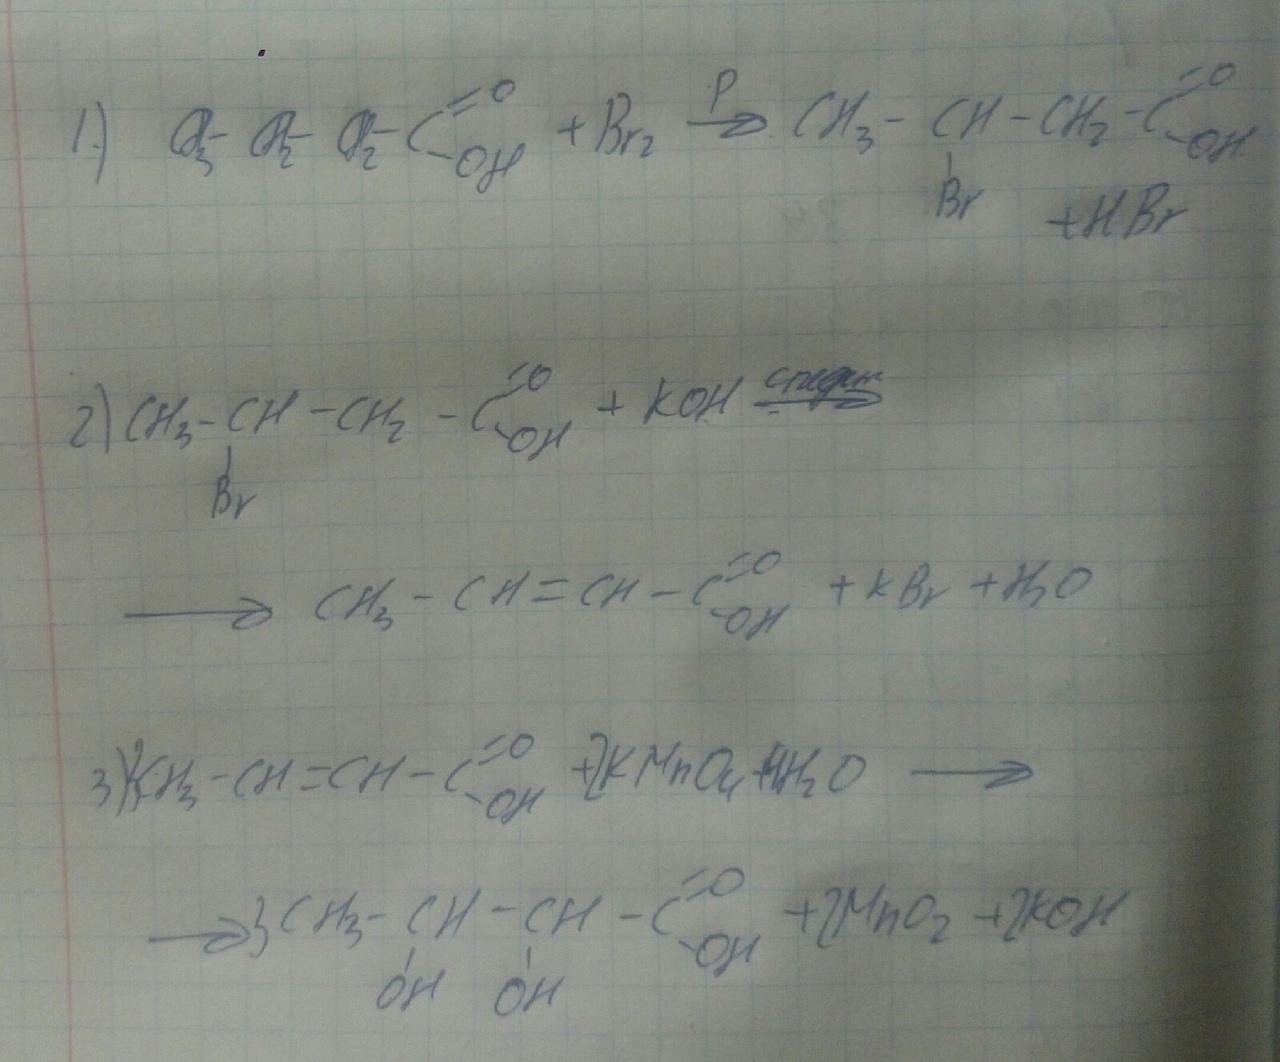 1.) CH3-CH2-CH2-C=O-OH +Br2 P→ CH3-CH-CH2-C=O-OH
Br +HBr
2) CH3-CH-CH2-C=O-OH + KOH спирт→
Br
→ CH3-CH=CH-C=O-OH +KBr +H2O
3) 3CH3-CH=CH-C=O-OH +2KMnO4+4H2O →
→3CH3-CH-CH-C=O-OH +2MnO2+2KOH
OH OH